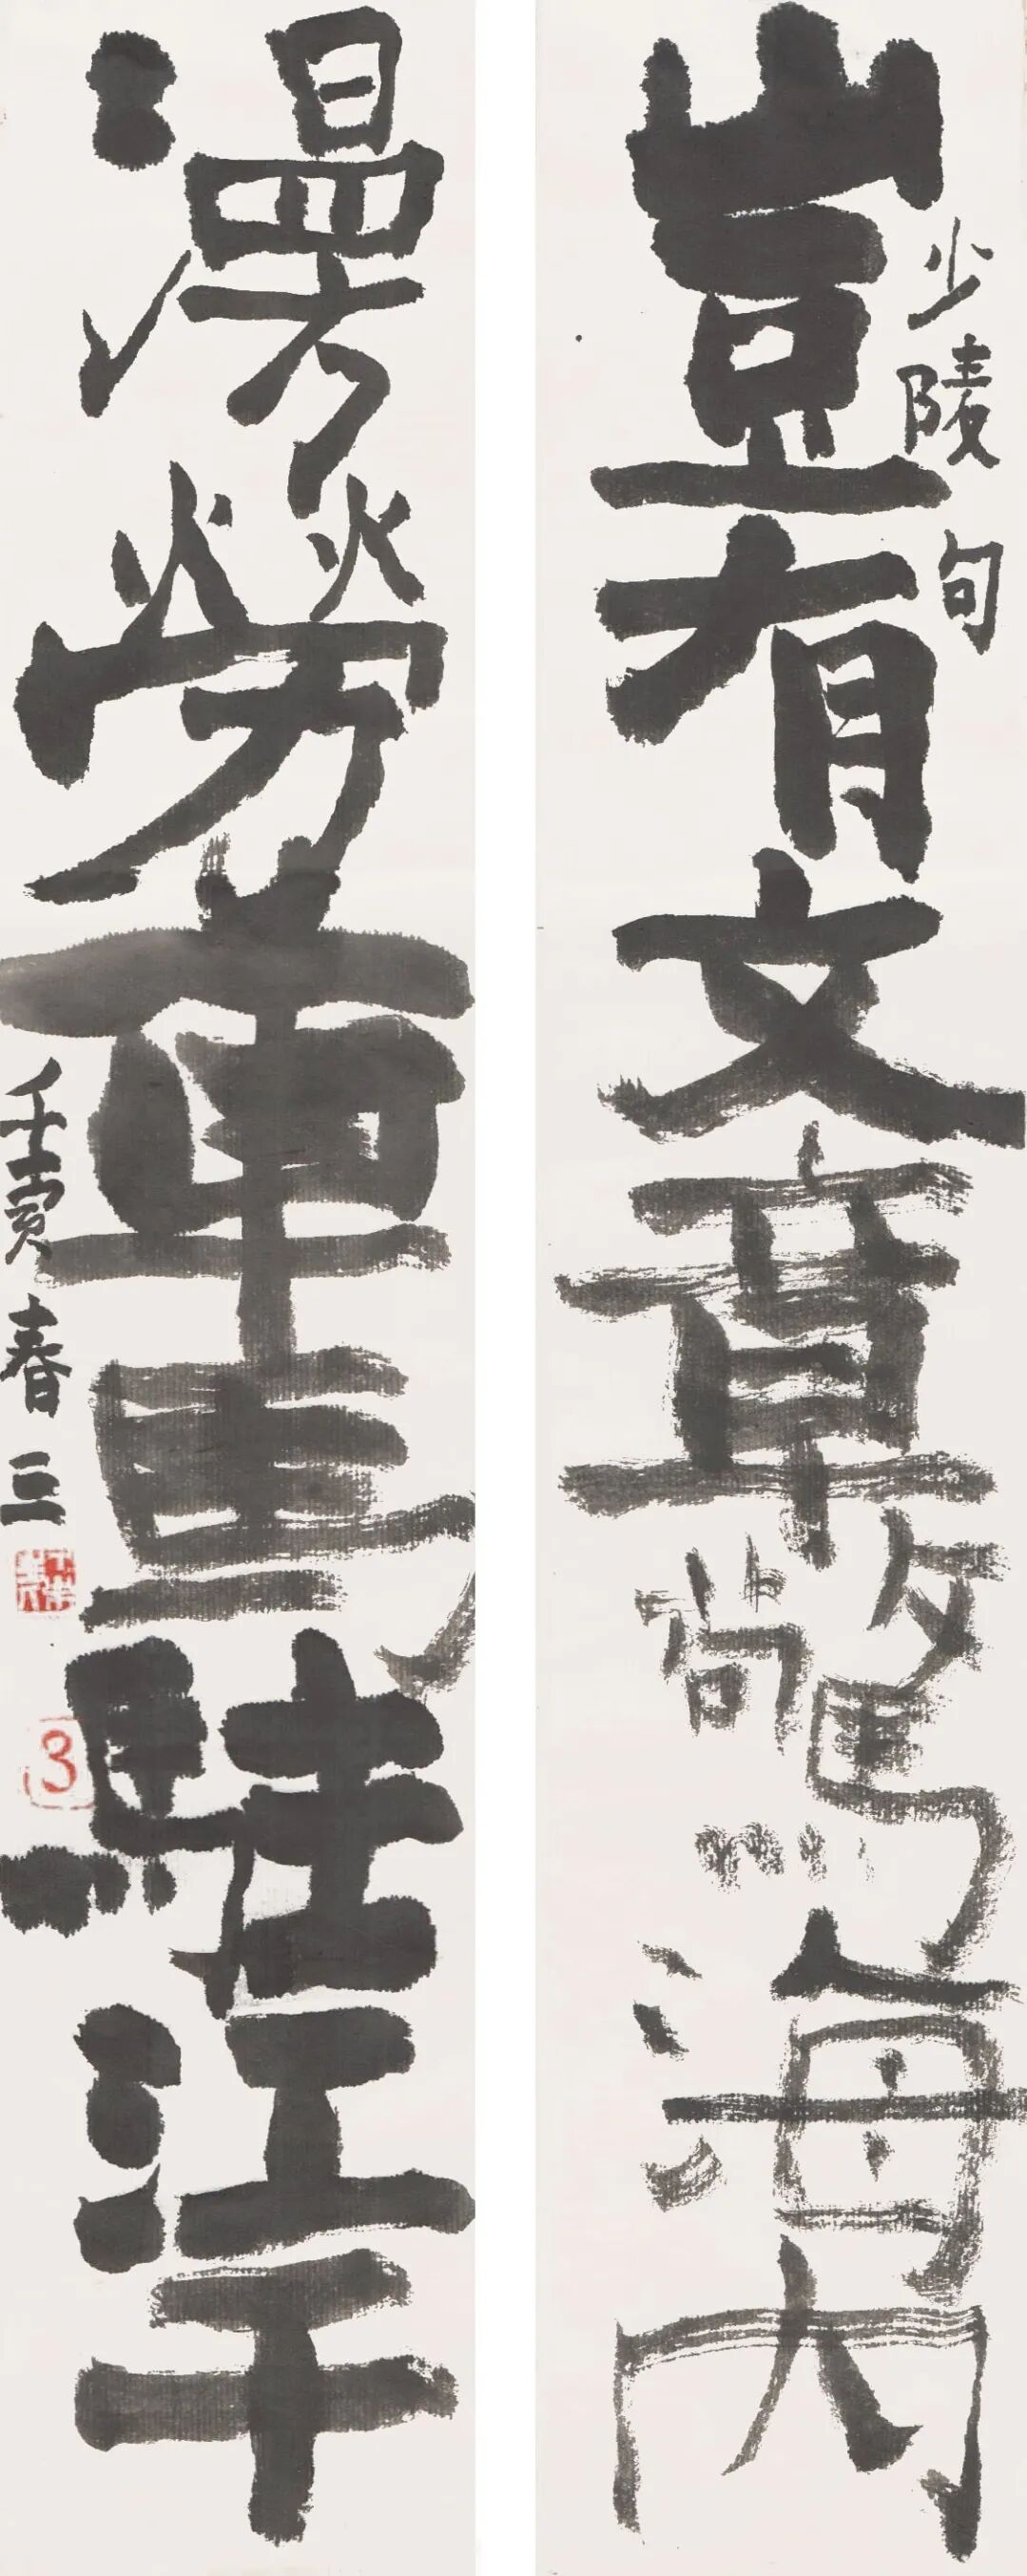 豈有文章驚海内
少陵句
漫勞車馬駐江干
壬寅春三
3